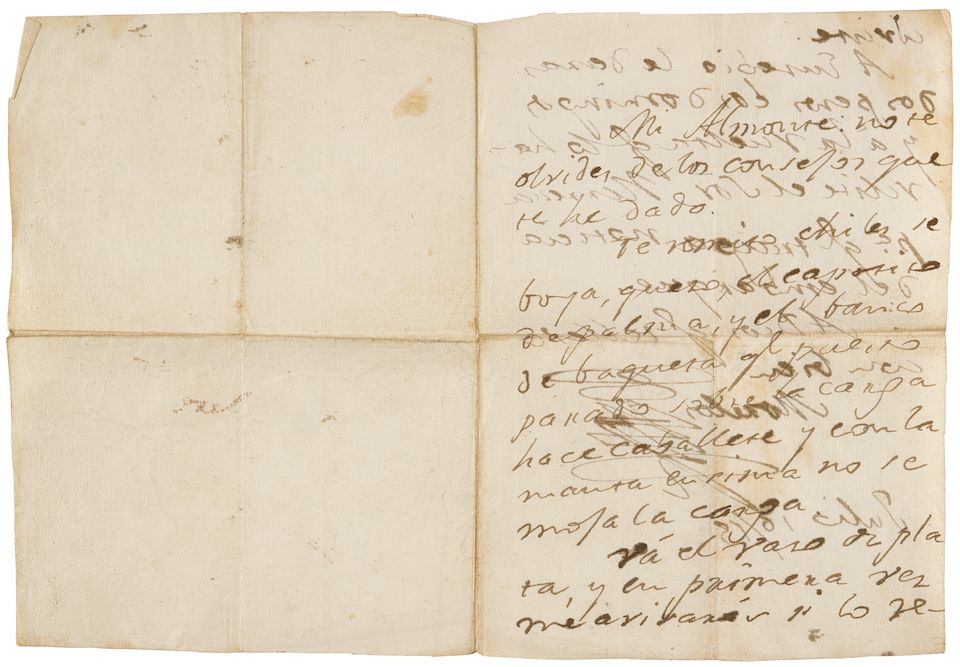 Mi Almonte: no te
olvides de los consejos que
te he dado.
Te remito chiles se
boya, queso, el caposito
de palma, y el banico
de baqueta q.l puesto
parado sobre la carga
hace caballete y con la
manta ensima no se
moja la carga
Vá el vaso de pla
ta, y en primera vez
me avisarás si lo re-